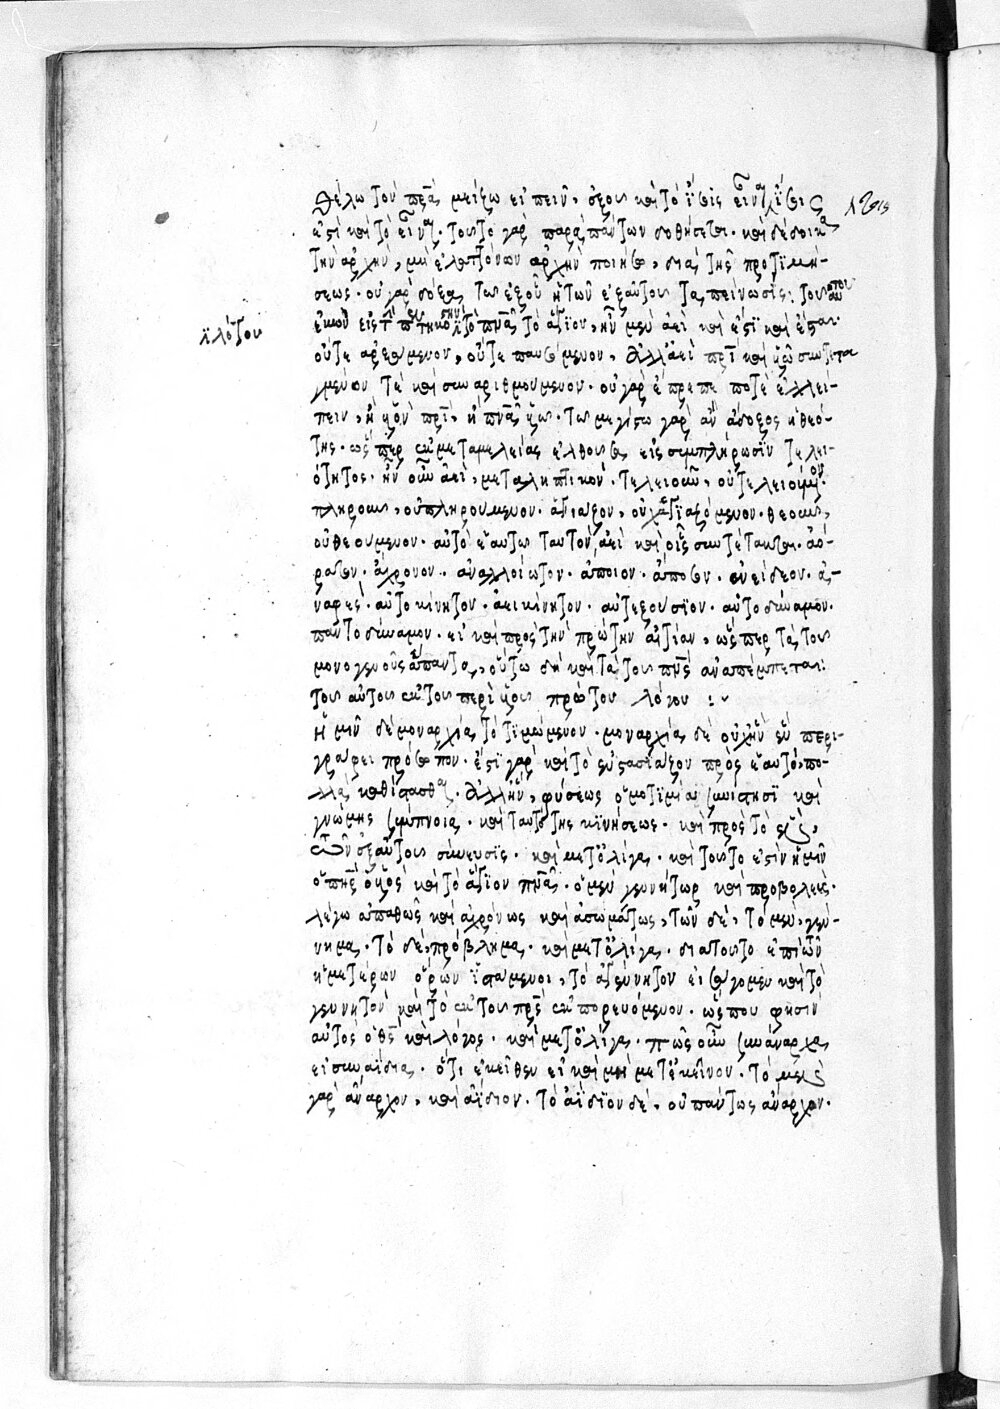 θέλω τὸν πρ̅α μείζω εἰπεῖν, ἐξ οὗ καὶ τὸ ἴσοις εἶναι τοῖς ἴσοις
ἐστὶ καὶ τὸ εἶναι. τοῦτο γὰρ παρὰ πάντων δοθήσεται. καὶ δέδοικα
τὴν ἀρχὴν, μὴ ἐλαττόνων ἀρχὴν ποιήσω, διὰ τῆς προτιμή-
σεως. οὐ γὰρ δόξα τῷ ἐξ οὗ ἡ τῶν ἐξ αὐτοῦ ταπείνωσις: τοῦ αὐτοῦ
ἐκ τοῦ εἰς τ πεντηκοστὴν λόγου
τὸ πν̅α τὸ ἅγιον, ἦν μὲν ἀεὶ καὶ ἔστι καὶ ἔσται.
οὔτε ἀρξάμενον, οὔτε παυσόμενον, ἀλλ' ἀεὶ πρ̅ι καὶ υἱῷ συντεταγ
μένον τὲ καὶ συναριθμούμενον. οὐ γὰρ ἔπρεπέ ποτε ἐλλεί-
πειν, ἢ υἱὸν πρ̅ι, ἢ πν̅α υἱῷ. τῷ μεγίστῳ γὰρ ἂν ἄδοξος ἡ θεό-
της. ὥσπερ ἐκ μεταμελείας ἐλθοῦσα εἰς συμπλήρωσιν τελει-
ότητος. ἦν οὖν ἀεὶ, μεταληπτικόν. τελειοῦν, οὐ τελειούμενον.
πληροῦν, οὐ πληρούμενον. ἁγιάζον, οὐχ ἁγιαζόμενον. θεοῦν,
οὐ θεούμενον. αὐτὸ ἑαυτῷ ταυτὸν ἀεὶ καὶ οἷς συντέτακται. ἀό-
ρατον. ἄχρονον. ἀναλλοίωτον. ἄποιον. ἄποσον. ἀνείδεον. ἀ-
ναφές. αὐτοκίνητον. ἀεικίνητον. αὐτεξούσιον. αὐτοδύναμον.
παντοδύναμον. εἰ καὶ πρὸς τὴν πρώτην αἰτίαν, ὥσπερ τὰ τοῦ
μονογενοῦς ἅπαντα, οὕτω δὴ καὶ τὰ τοῦ πν̅ς ἀναπέμπεται:
τοῦ αὐτοῦ ἐκ τοῦ περὶ υἱοῦ πρώτου λόγου :~
Ἡμῖν δὲ μοναρχία τὸ τιμώμενον. μοναρχία δὲ οὐχ ἣν ἓν περι-
γράφει πρόσωπον. ἔστι γὰρ καὶ τὸ ἓν στασιάζον πρὸς ἑαυτὸ, πο-
λλὰ καθίστασθαι. ἀλλ' ἣν, φύσεως ὁμοτιμία συνίστησι καὶ
γνώμης σύμπνοια. καὶ ταυτότης κινήσεως. καὶ πρὸς τὸ ἓν,
τῶν ἐξ αὐτοῦ σύννευσις. καὶ μετ' ὀλίγα. καὶ τοῦτό ἐστιν ἡμῖν
ὁ πη̅ρ ὁ υἱὸς καὶ τὸ ἅγιον πν̅α. ὁ μὲν γεννήτωρ καὶ προβολεύς.
λέγω ἀπαθῶς καὶ ἀχρόνως καὶ ἀσωμάτως, τῶν δὲ, τὸ μὲν, γέν-
νημα. τὸ δὲ, πρόβλημα. καὶ μετ' ὀλίγα. διὰ τοῦτο ἐπὶ τῶν
ἡμετέρων ὅρων ἱστάμενοι, τὸ ἀγέννητον εἰσάγομεν καὶ τὸ
γεννητὸν καὶ τὸ ἐκ τοῦ πρ̅ς ἐκπορευόμενον. ὥς που φησὶν
αὐτὸς ὁ θ̅ς καὶ λόγος. καὶ μετ' ὀλίγα. πῶς οὖν συνάναρχα
εἰ συναΐδια. ὅτι ἐκεῖθεν εἰ καὶ μὴ μετ' ἐκεῖνον. τὸ μὲν
γὰρ ἄναρχον, καὶ ἀΐδιον. τὸ ἀΐδιον δὲ, οὐ πάντως ἄναρχον.